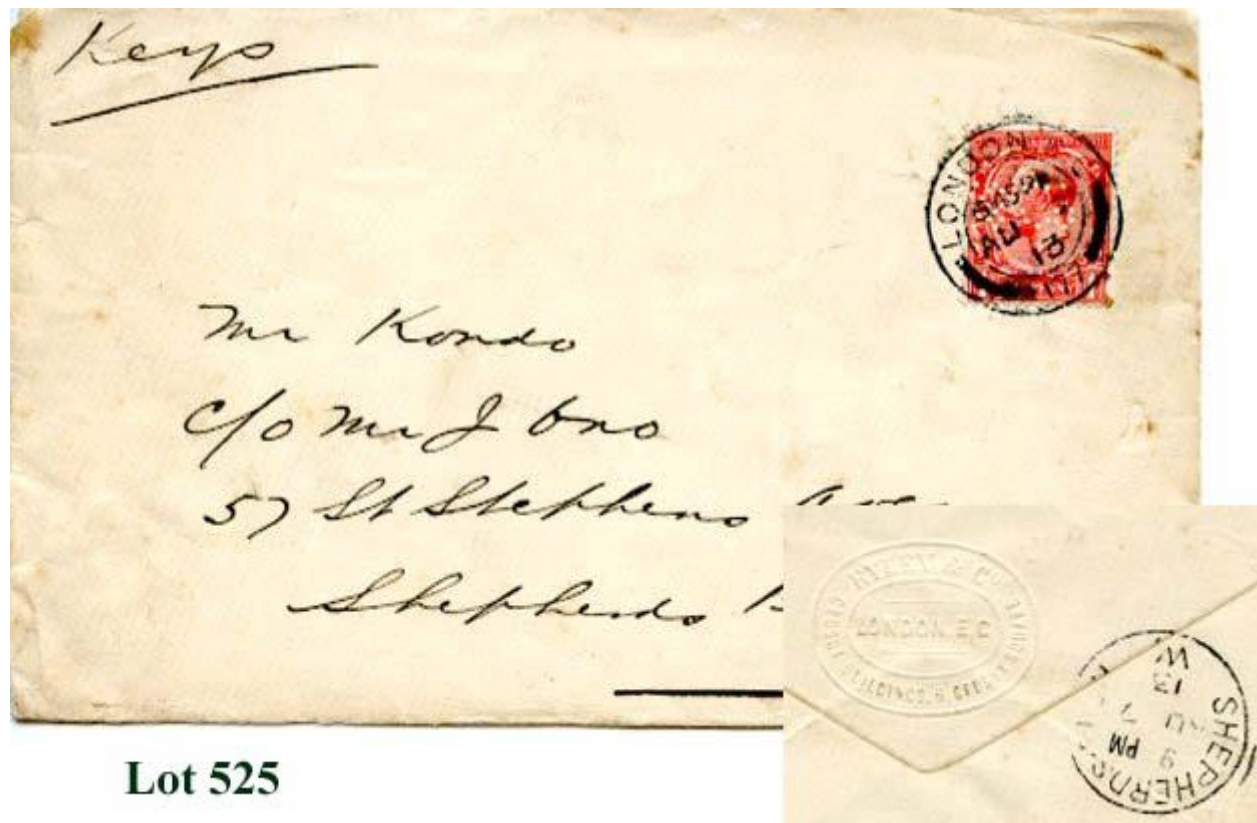 Keys
LONDON
AU 7
13
Mr Kondo
c/o Mr J Ono
57 St Stephens Ave
Shepherds
& Co
LONDON. E.C
SHEPHERDS
W
13
AU 7
9 PM
Lot 525